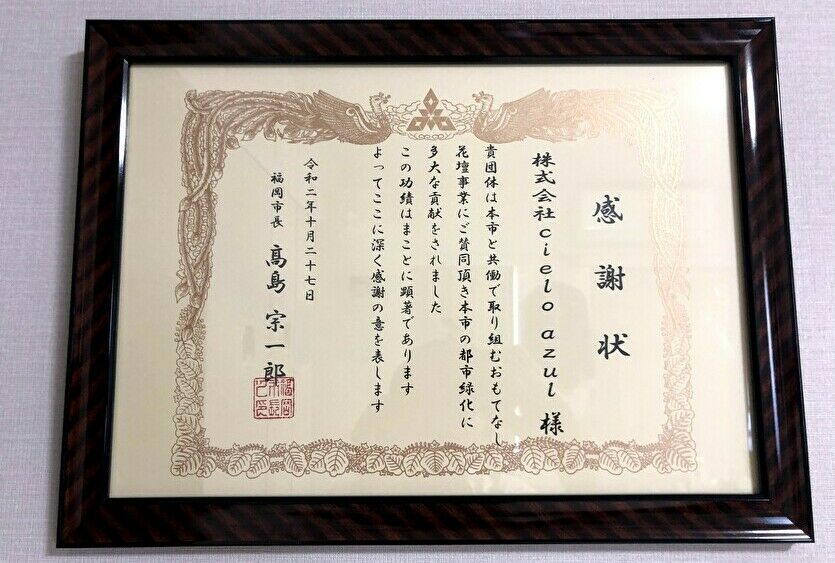 感謝状
株式会社cielo azul 様
貴団体は本市と共働で取り組むおもてなし
花壇事業にご賛同頂き本市の都市緑化に
多大な貢献をされました
この功績はまことに顕著であります
よってここに深く感謝の意を表します
令和二年十月二十七日
福岡市長 髙島 宗一郎